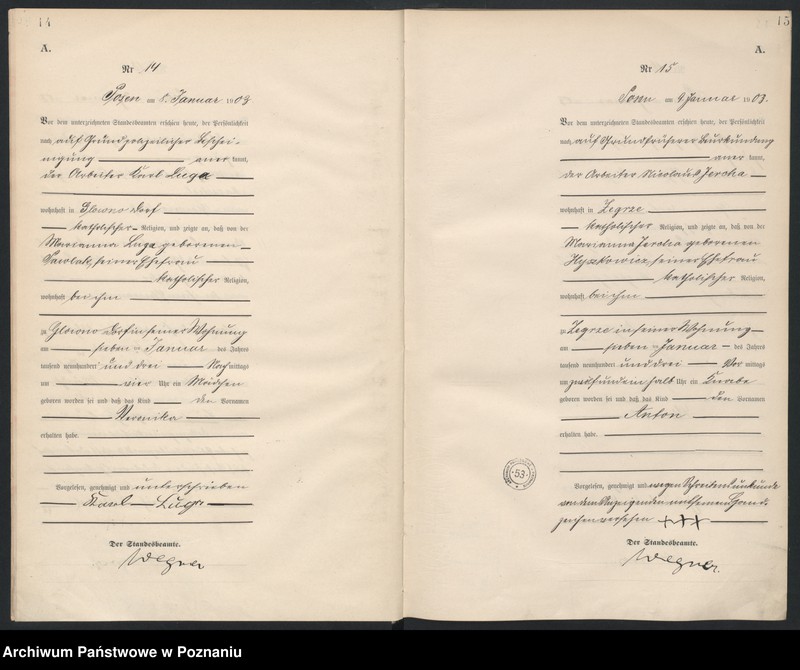 14
A.
Nr 14
Posen am 8. Januar 1903
Vor dem unterzeichneten Standesbeamten erschien heute, der Persönlichkeit
nach, auf Grund polizeilicher Beschei-
nigung anerkannt,
der Arbeiter Karl Luga
wohnhaft in Glowno Dorf
katholischer Religion, und zeigte an, daß von der
Marianna Luga geborenen
Pawlak, seiner Ehefrau
katholischer Religion,
wohnhaft bei ihm
zu Glowno Dorf in seiner Wohnung
am sieben Januar des Jahres
tausend neunhundert und drei Nachmittags
um vier Uhr ein Mädchen
geboren worden sei und daß das Kind den Vornamen
Veronika
erhalten habe.
Vorgelesen, genehmigt und unterschrieben
Karl Luga
Der Standesbeamte.
Wegner
15
A.
Nr 15
Posen am 9 Januar 1903.
Vor dem unterzeichneten Standesbeamten erschien heute, der Persönlichkeit
nach, auf Grund früherer Beurkundung
anerkannt,
der Arbeiter
wohnhaft in Zegrze
katholischer Religion, und zeigte an, daß von der
Marianna geborenen
seiner Ehefrau
katholischer Religion,
wohnhaft bei ihm
zu Zegrze in seiner Wohnung
am sieben Januar des Jahres
tausend neunhundert und drei Vormittags
um zwölf und ein halb Uhr ein Knabe
geboren worden sei und daß das Kind den Vornamen
Anton
erhalten habe.
Vorgelesen, genehmigt und wegen Schreibensunkunde
von dem Anzeigenden mit seinem Hand-
zeichen versehen +++
Der Standesbeamte.
Wegner.
53
Archiwum Państwowe w Poznaniu